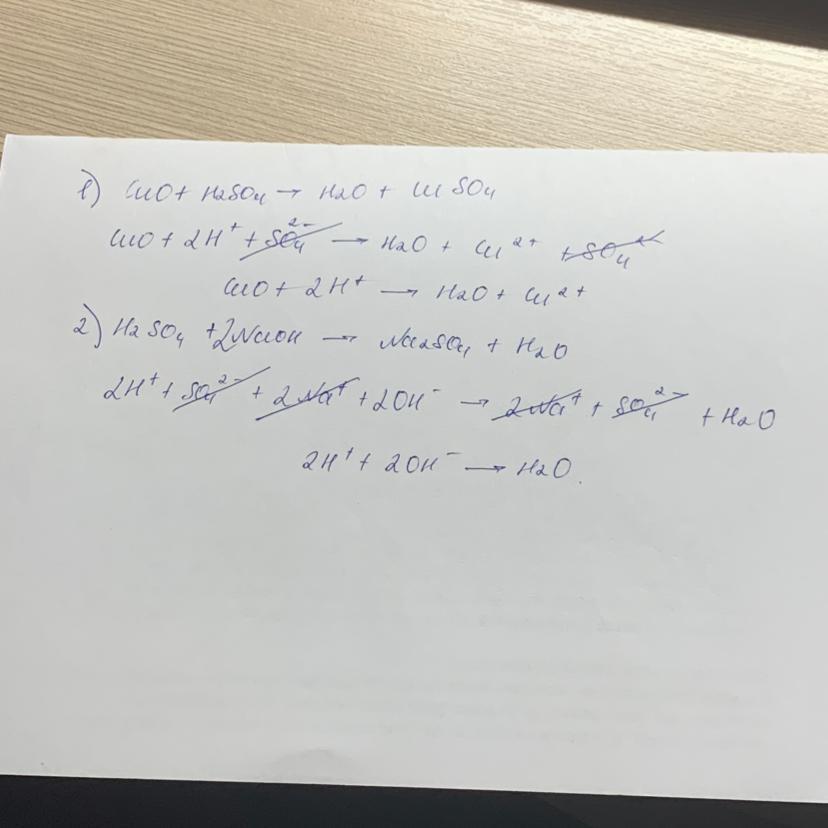 1) CuO + H2SO4 → H2O + CuSO4
CuO + 2H⁺ + SO4²⁻ → H2O + Cu²⁺ + SO4²⁻
CuO + 2H⁺ → H2O + Cu²⁺
2) H2SO4 + 2NaOH → Na2SO4 + H2O
2H⁺ + SO4²⁻ + 2Na⁺ + 2OH⁻ → 2Na⁺ + SO4²⁻ + H2O
2H⁺ + 2OH⁻ → H2O.